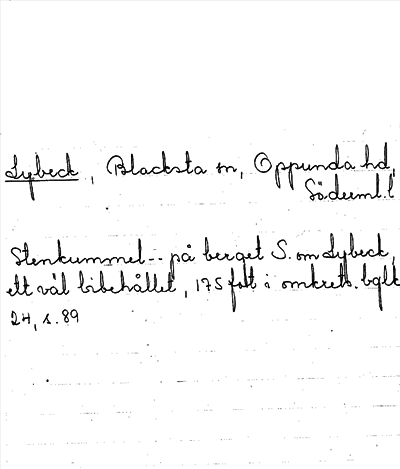 Lybeck, Blacksta sn, Oppunda hd,
Söderml. l
Stenkummel -- på berget S. om Lybeck,
ett väl bibehållet, 175 fot i omkrets. bglk
24, s. 89